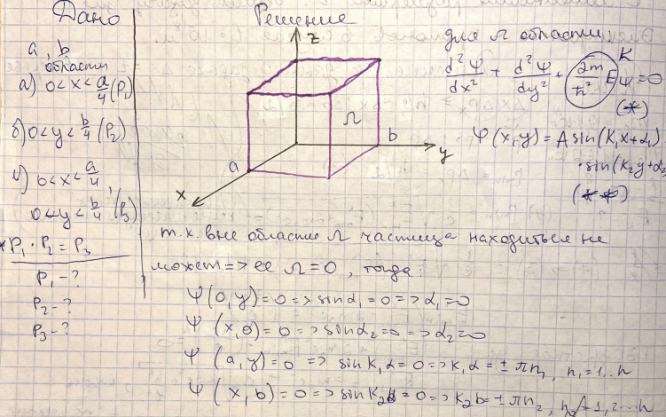 Дано
a, b
области
а) 0<x<a/4 (P₁)
б) 0<y<b/4 (P₂)
в) 0<x<a/4,
0<y<b/4 (P₃)
*P₁·P₂=P₃
P₁-?
P₂-?
P₃-?
Решение
z
Ω
a
b
x
y
для Ω области
K
d²Ψ/dx² + d²Ψ/dy² + 2m/ħ² EΨ=0
(*)
Ψ(x,y)=A sin(K₁x+α₁)
·sin(K₂y+α₂)
(**)
т.к. вне области Ω частица находиться не
может => ее Ω=0, тогда:
Ψ(0,y)=0=>sinα₁=0=>α₁=0
Ψ(x,0)=0=>sinα₂=0=>α₂=0
Ψ(a,y)=0 => sin K₁a=0=>K₁a=±πn₁, n₁=1..n
Ψ(x,b)=0=>sin K₂b=0=>K₂b=±πn₂, n₂=1,2..n